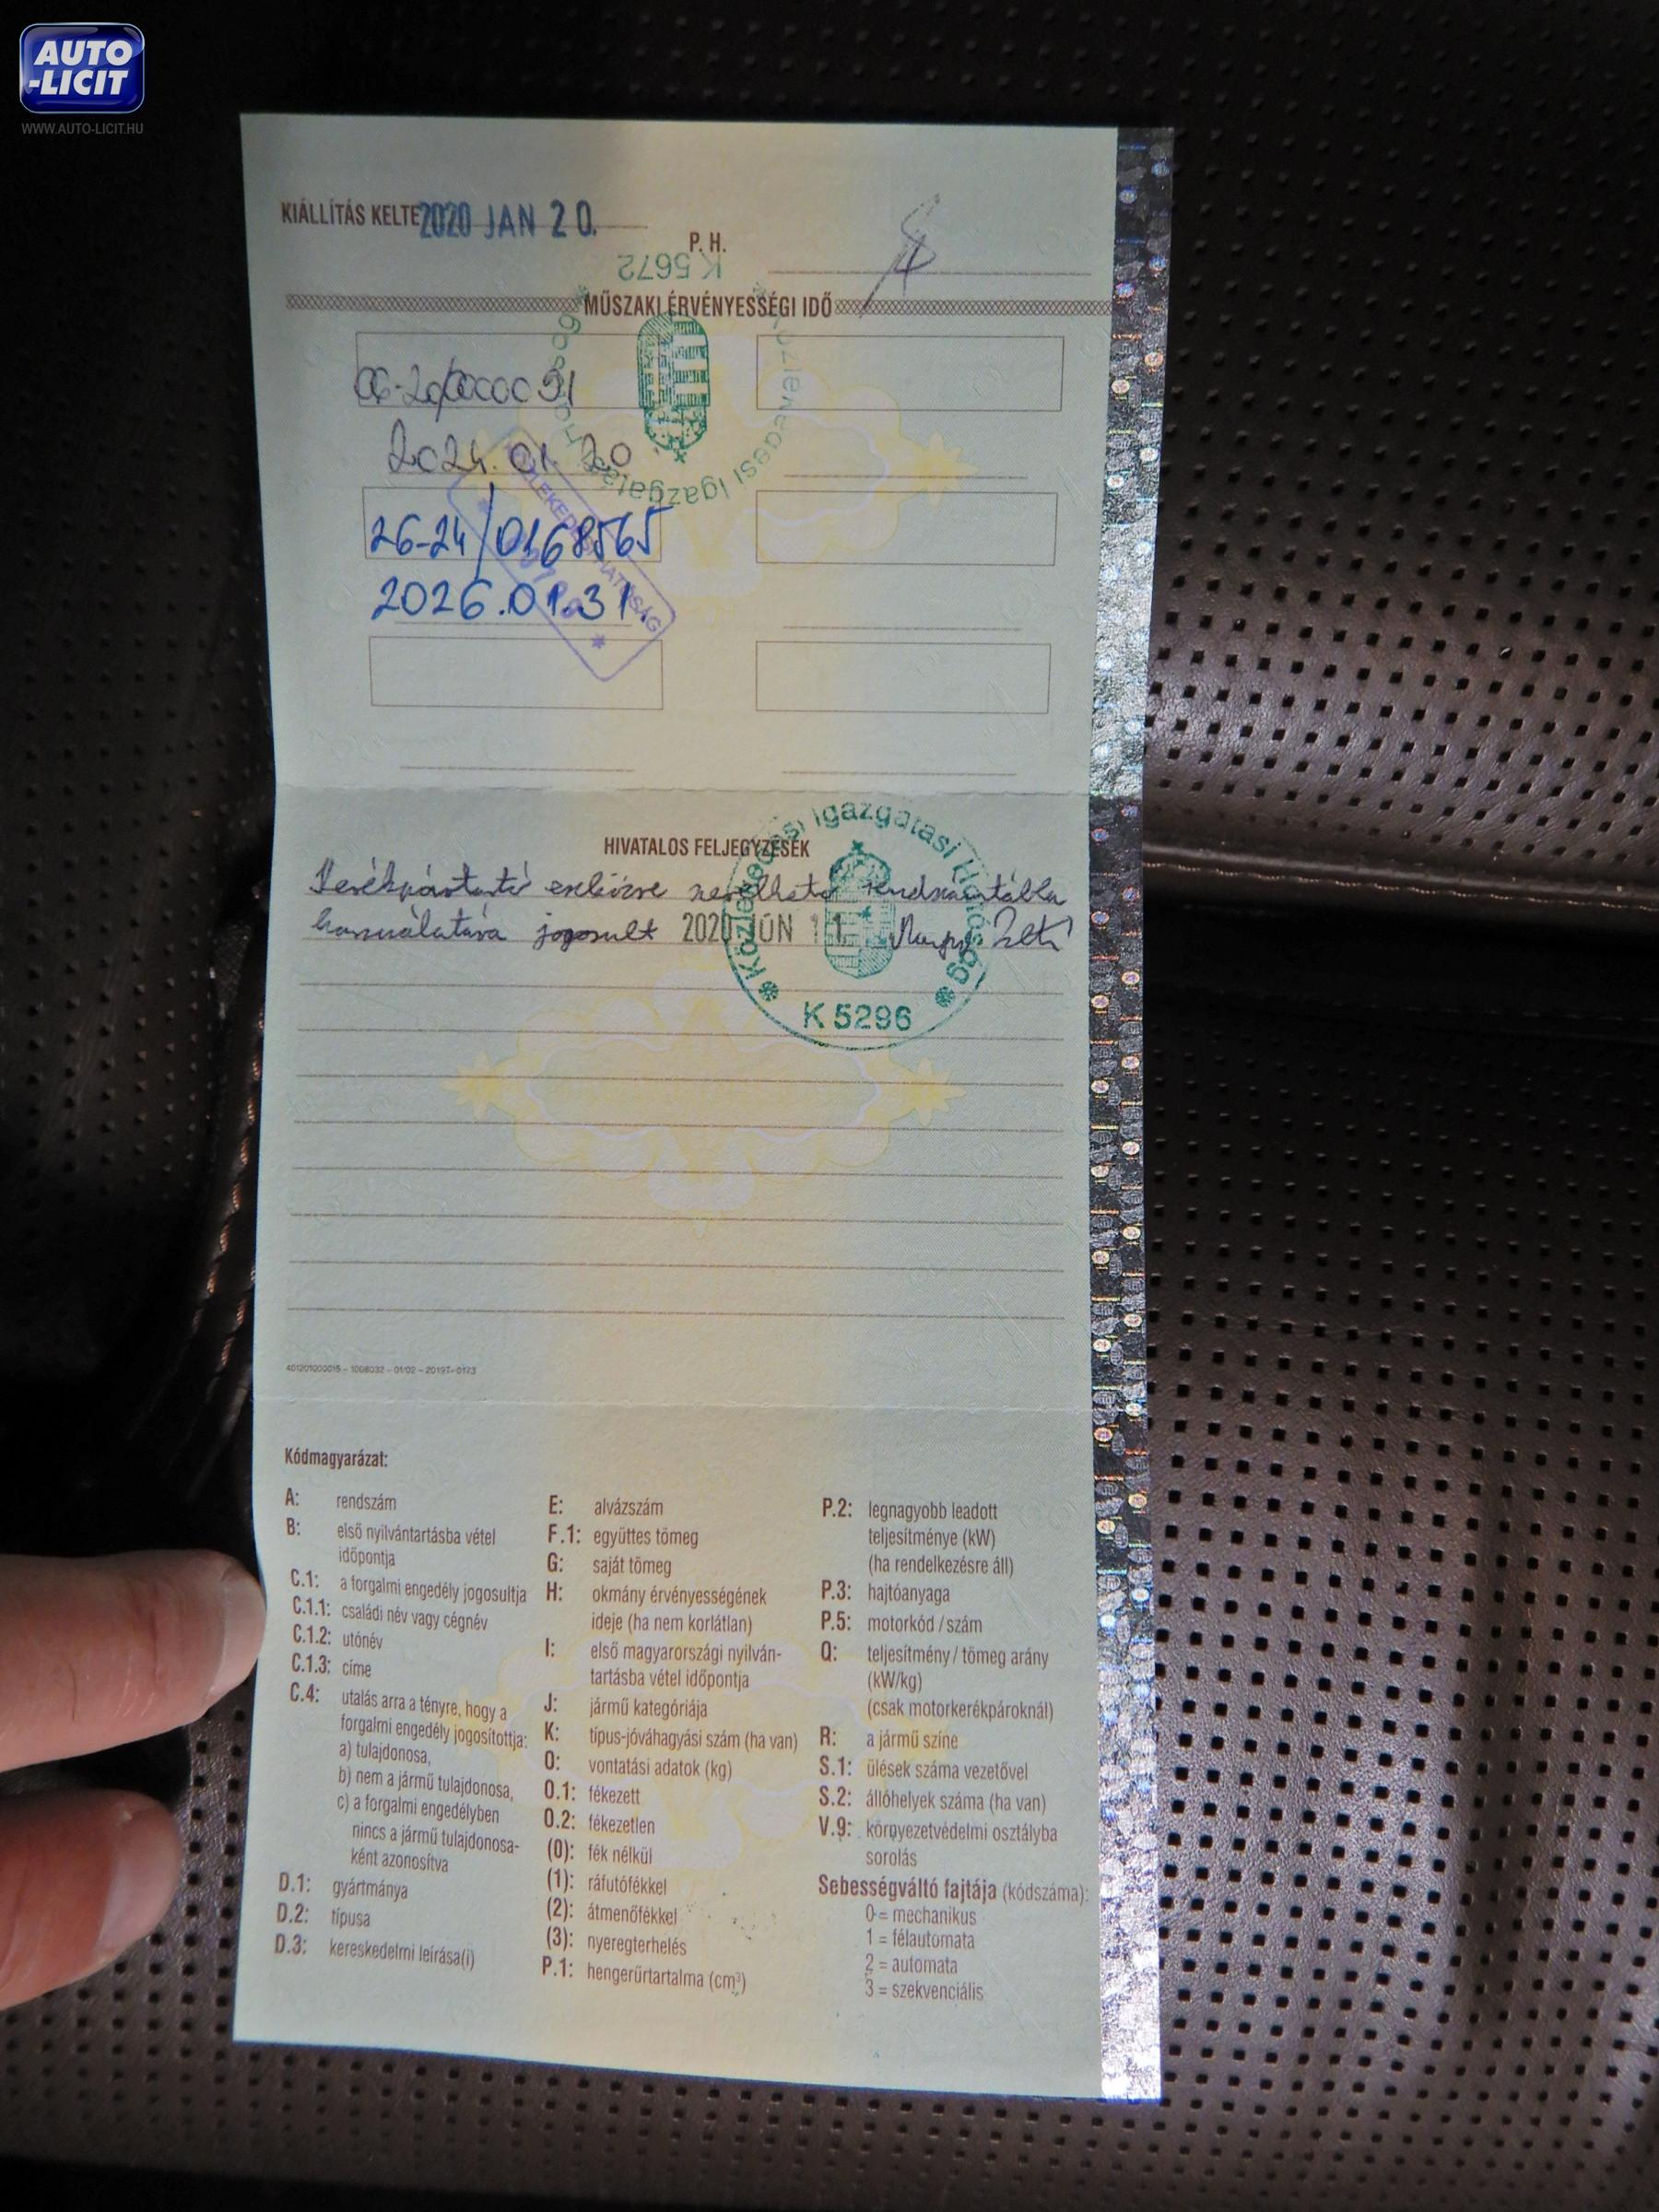 AUTO
-LICIT
WWW.AUTO-LICIT.HU
KIÁLLÍTÁS KELTE 2020 JAN 20.
P. H.
K 5672
MŰSZAKI ÉRVÉNYESSÉGI IDŐ
Közlekedési Igazgatási Hatóság
2024.01.20
26-24/0168565
2026.01.31.
KÖZLEKEDÉSI HATÓSÁG
HIVATALOS FELJEGYZÉSEK
Közlekedési Igazgatási Hatóság
K 5296
Kerékpártartó eszközre szerelhető rendszámtábla
használatára jogosult 2020 JÚN 11.
401201000015 – 1008032 – 01/02 – 2019T–0173
Kódmagyarázat:
A: rendszám
B: első nyilvántartásba vétel
időpontja
C.1: a forgalmi engedély jogosultja
C.1.1: családi név vagy cégnév
C.1.2: utónév
C.1.3: címe
C.4: utalás arra a tényre, hogy a
forgalmi engedély jogosítottja:
a) tulajdonosa,
b) nem a jármű tulajdonosa,
c) a forgalmi engedélyben
nincs a jármű tulajdonosa-
ként azonosítva
D.1: gyártmánya
D.2: típusa
D.3: kereskedelmi leírása(i)
E: alvázszám
F.1: együttes tömeg
G: saját tömeg
H: okmány érvényességének
ideje (ha nem korlátlan)
I: első magyarországi nyilván-
tartásba vétel időpontja
J: jármű kategóriája
K: típus-jóváhagyási szám (ha van)
O: vontatási adatok (kg)
O.1: fékezett
O.2: fékezetlen
(0): fék nélkül
(1): ráfutófékkel
(2): átmenőfékkel
(3): nyeregterhelés
P.1: hengerűrtartalma (cm³)
P.2: legnagyobb leadott
teljesítménye (kW)
(ha rendelkezésre áll)
P.3: hajtóanyaga
P.5: motorkód / szám
Q: teljesítmény / tömeg arány
(kW/kg)
(csak motorkerékpároknál)
R: a jármű színe
S.1: ülések száma vezetővel
S.2: állóhelyek száma (ha van)
V.9: környezetvédelmi osztályba
sorolás
Sebességváltó fajtája (kódszáma):
0 = mechanikus
1 = félautomata
2 = automata
3 = szekvenciális